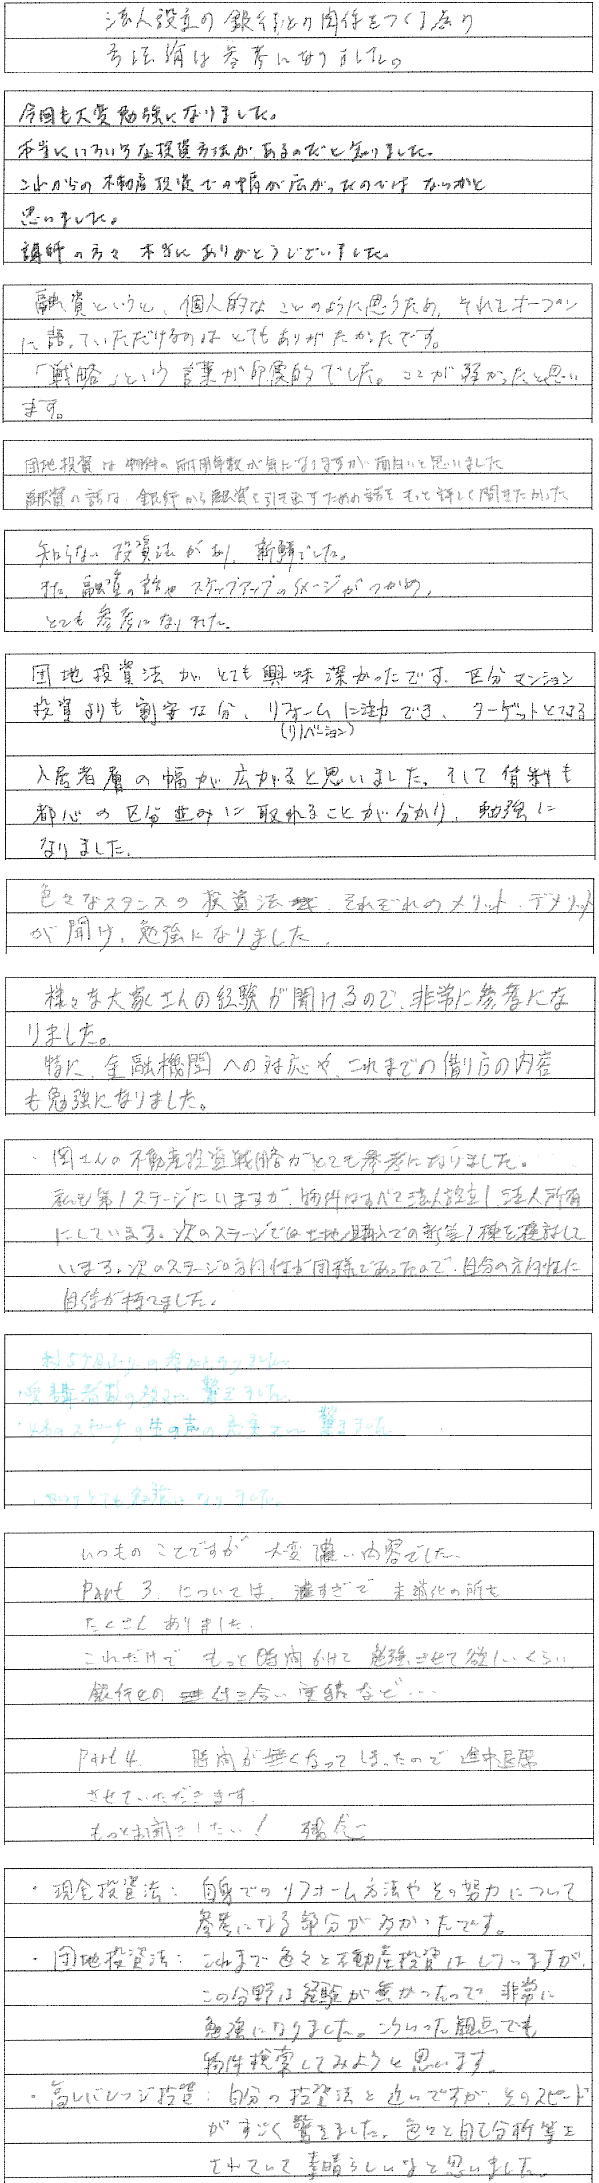 法人設立の銀行との関係をつくる辺り
方法論は参考になりました。
今回も大変勉強になりました。
本当にいろいろな投資方法があるのだと知りました。
これからの不動産投資での幅が広がったのではないかと
思いました。
講師の方々 本当にありがとうございました。
融資というと、個人的なことのように思うため、それをオープン
に語っていただけるのはとてもありがたかったです。
「戦略」という言葉が印象的でした。ここが弱かったと思い
ます。
団地投資は物件の耐用年数が気になりますが面白いと思いました
融資の話は、銀行から融資を引き出すための話をもっと詳しく聞きたかった
知らない投資法があり、新鮮でした。
また、融資の話やステップアップのイメージがつかめ、
とても参考になりました。
団地投資法がとても興味深かったです。区分マンション
投資よりも割安な分、リフォームに注力でき、ターゲットとなる
(リノベーション)
入居者層の幅が広がると思いました。そして賃料も
都心の区分並みに取れることが分かり、勉強に
なりました。
色々なスタンスの投資法、それぞれのメリット、デメリット
が聞け、勉強になりました。
様々な大家さんの経験が聞けるので、非常に参考にな
りました。
特に、金融機関への対応や、これまでの借り方の内容
も勉強になりました。
・岡さんの不動産投資戦略がとても参考になりました。
私も第1ステージにいますが、物件はすべて法人設立し法人所有
にしています。次のステージでは土地購入での新築1棟を検討して
います。次のステージの方向性が同様であったので、自分の方向性に
自信が持てました。
驚きました。
生の声の 驚きました
とても勉強になりました。
いつものことですが 大変濃い内容でした。
Part 3 については、濃すぎて 未消化の所も
たくさんありました。
これだけで もっと時間かけて 勉強させて欲しいくらい
銀行との 付き合い 実績など…
Part 4 時間が無くなってしまったので 途中退席
させていただきます。
もっとお聞きしたい! 残念
・現金投資法: 自身でのリフォーム方法やその努力について
参考になる部分が多かったです。
・団地投資法: これまで色々と不動産投資はしていますが、
この分野は経験が無かったので、非常に
勉強になりました。こういった観点でも
物件検索してみようと思います。
・高レバレッジ投資: 自分の投資法と近いですが、そのスピード
がすごく驚きました。色々と自己分析等を
されていて素晴らしいなと思いました。